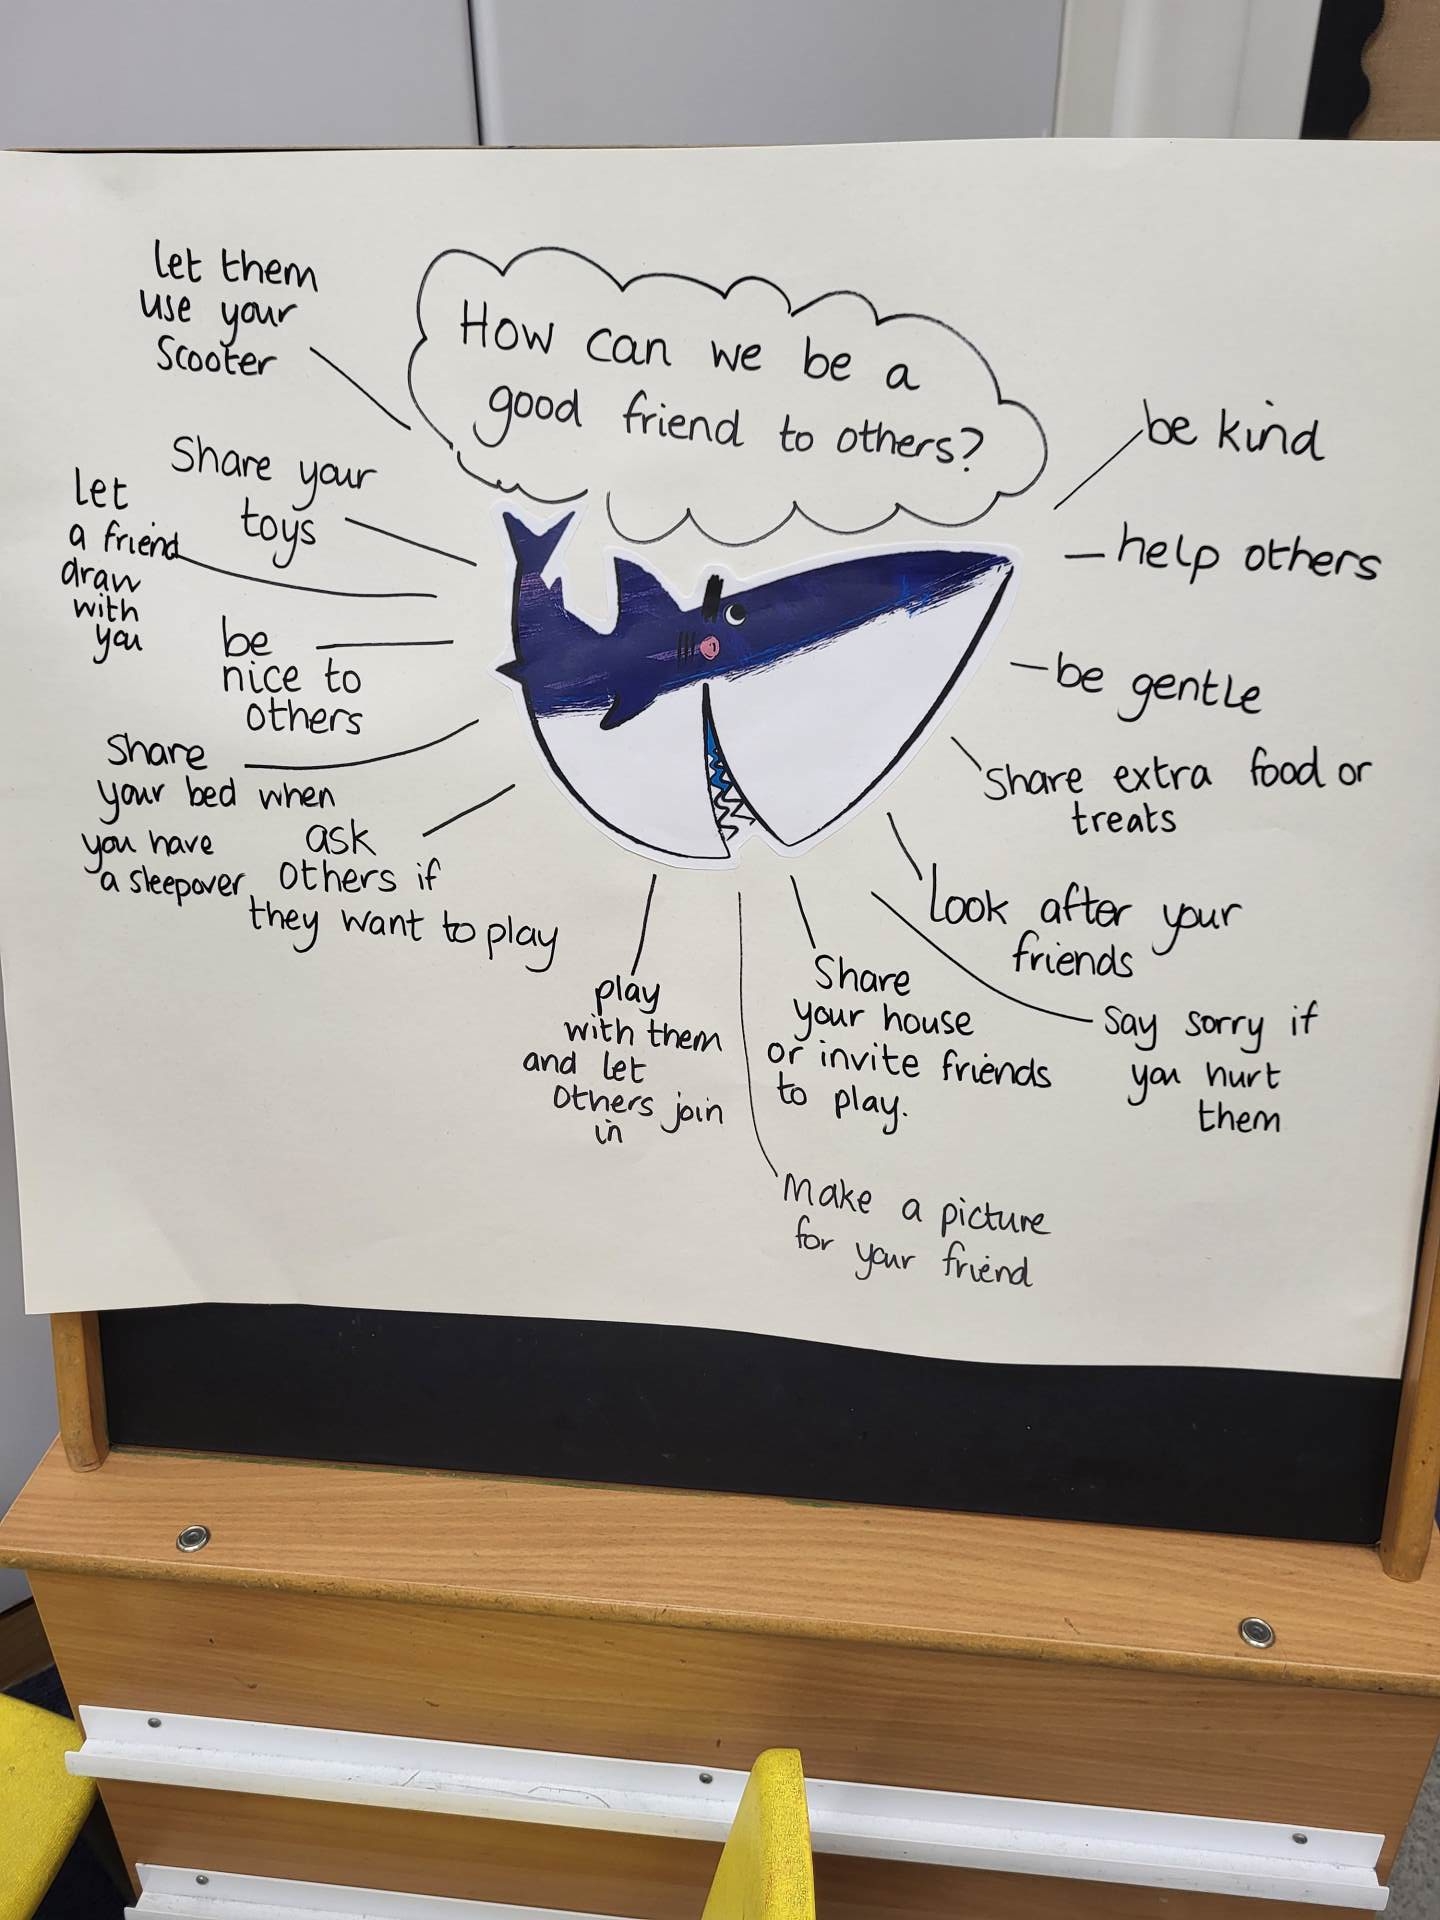 How can we be a
good friend to others?
let them
use your
scooter
Share your
toys
let
a friend
draw
with
you
be
nice to
others
Share
your bed when
you have
a sleepover
ask
others if
they want to play
play
with them
and let
others join
in
Make a picture
for your friend
Share
your house
or invite friends
to play.
Say sorry if
you hurt
them
Look after your
friends
Share extra food or
treats
be gentle
help others
be kind